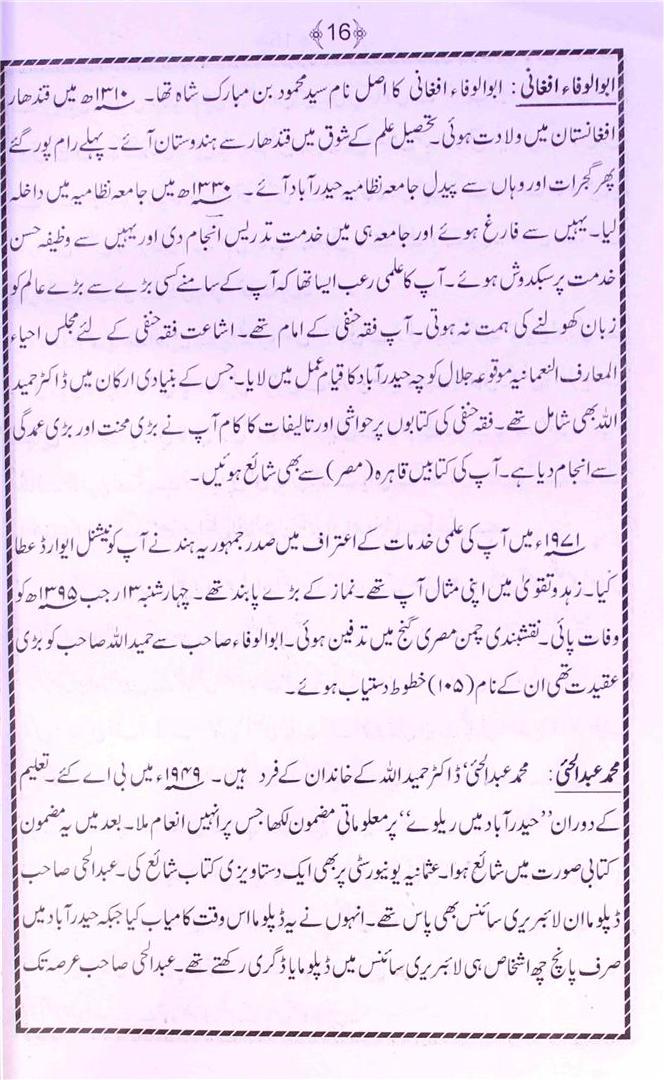 16
ابوالوفاء افغانی : ابوالوفاء افغانی کا اصل نام سید محمود بن مبارک شاہ تھا۔ ۱۳۱۰ھ میں قندھار
افغانستان میں ولادت ہوئی۔ تحصیل علم کے شوق میں قندھار سے ہندوستان آئے۔ پہلے رام پور گئے
پھر گجرات اور وہاں سے پیدل جامعہ نظامیہ حیدرآباد آئے۔ ۱۳۳۰ھ میں جامعہ نظامیہ میں داخلہ
لیا۔ یہیں سے فارغ ہوئے اور جامعہ ہی میں خدمت تدریس انجام دی اور یہیں سے وظیفہ حسن
خدمت پر سبکدوش ہوئے۔ آپ کا علمی رعب ایسا تھا کہ آپ کے سامنے کسی بڑے سے بڑے عالم کو
زبان کھولنے کی ہمت نہ ہوتی۔ آپ فقہ حنفی کے امام تھے۔ اشاعت فقہ حنفی کے لئے مجلس احیاء
المعارف النعمانیہ موقوعہ جلال کوچہ حیدرآباد کا قیام عمل میں لایا۔ جس کے بنیادی ارکان میں ڈاکٹر حمید
اللہ بھی شامل تھے۔ فقہ حنفی کی کتابوں پر حواشی اور تالیفات کا کام آپ نے بڑی محنت اور بڑی عمدگی
سے انجام دیا ہے۔ آپ کی کتابیں قاہرہ (مصر) سے بھی شائع ہوئیں۔
۱۹۷۱ء میں آپ کی علمی خدمات کے اعتراف میں صدر جمہوریہ ہند نے آپ کو نیشنل ایوارڈ عطا
کیا۔ زہد و تقویٰ میں اپنی مثال آپ تھے۔ نماز کے بڑے پابند تھے۔ چہارشنبہ ۱۳ رجب ۱۳۹۵ھ کو
وفات پائی۔ نقشبندی چمن مصری گنج میں تدفین ہوئی۔ ابوالوفاء صاحب سے حمید اللہ صاحب کو بڑی
عقیدت تھی ان کے نام (۱۰۵) خطوط دستیاب ہوئے۔
محمد عبدالحئی : محمد عبدالحئی' ڈاکٹر حمید اللہ کے خاندان کے فرد ہیں۔ ۱۹۴۹ء میں بی اے کئے۔ تعلیم
کے دوران ''حیدرآباد میں ریلوے'' پر معلوماتی مضمون لکھا جس پر انہیں انعام ملا۔ بعد میں یہ مضمون
کتابی صورت میں شائع ہوا۔ عثمانیہ یونیورسٹی پر بھی ایک دستاویزی کتاب شائع کی۔ عبدالحی صاحب
ڈپلوما ان لائبریری سائنس بھی پاس تھے۔ انہوں نے یہ ڈپلوما اس وقت کامیاب کیا جبکہ حیدرآباد میں
صرف پانچ چھ اشخاص ہی لائبریری سائنس میں ڈپلوما یا ڈگری رکھتے تھے۔ عبدالحی صاحب عرصہ تک